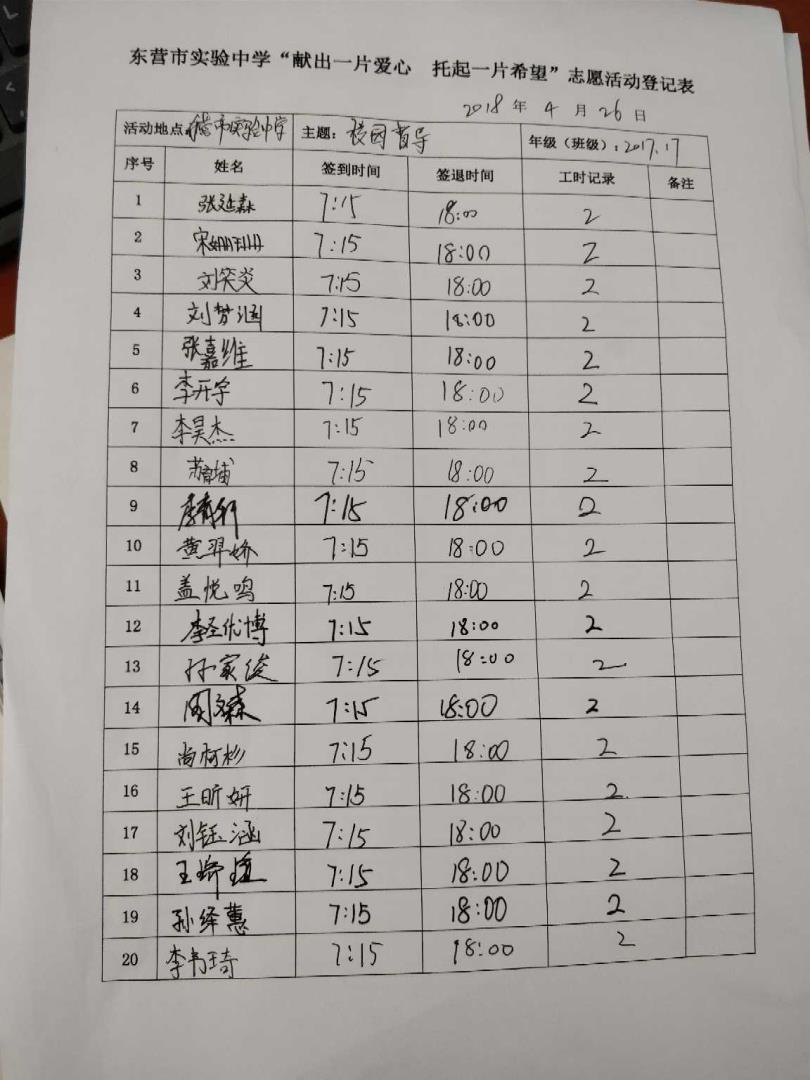 东营市实验中学“献出一片爱心 托起一片希望”志愿活动登记表
2018 年 4 月 26 日
活动地点:东营市实验中学 主题: 校园督导 年级(班级):2017.17
序号 姓名 签到时间 签退时间 工时记录 备注
1 张延森 7:15 18:00 2
2 宋姗姗 7:15 18:00 2
3 刘笑炎 7:15 18:00 2
4 刘梦涵 7:15 18:00 2
5 张嘉维 7:15 18:00 2
6 李开宇 7:15 18:00 2
7 李昊杰 7:15 18:00 2
8 7:15 18:00 2
9 7:15 18:00 2
10 黄羿娇 7:15 18:00 2
11 盖悦鸣 7:15 18:00 2
12 李圣优博 7:15 18:00 2
13 孙家俊 7:15 18:00 2
14 周 森 7:15 18:00 2
15 尚柯杉 7:15 18:00 2
16 王昕妍 7:15 18:00 2
17 刘钰涵 7:15 18:00 2
18 王 7:15 18:00 2
19 孙绎蕙 7:15 18:00 2
20 李韦琦 7:15 18:00 2